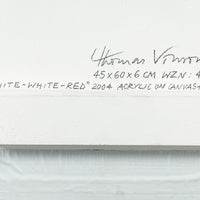 Thomas Vinson
45 x 60 x 6 CM WZN: 4
HITE-WHITE-RED" 2004 ACRYLIC ON CANVAS+